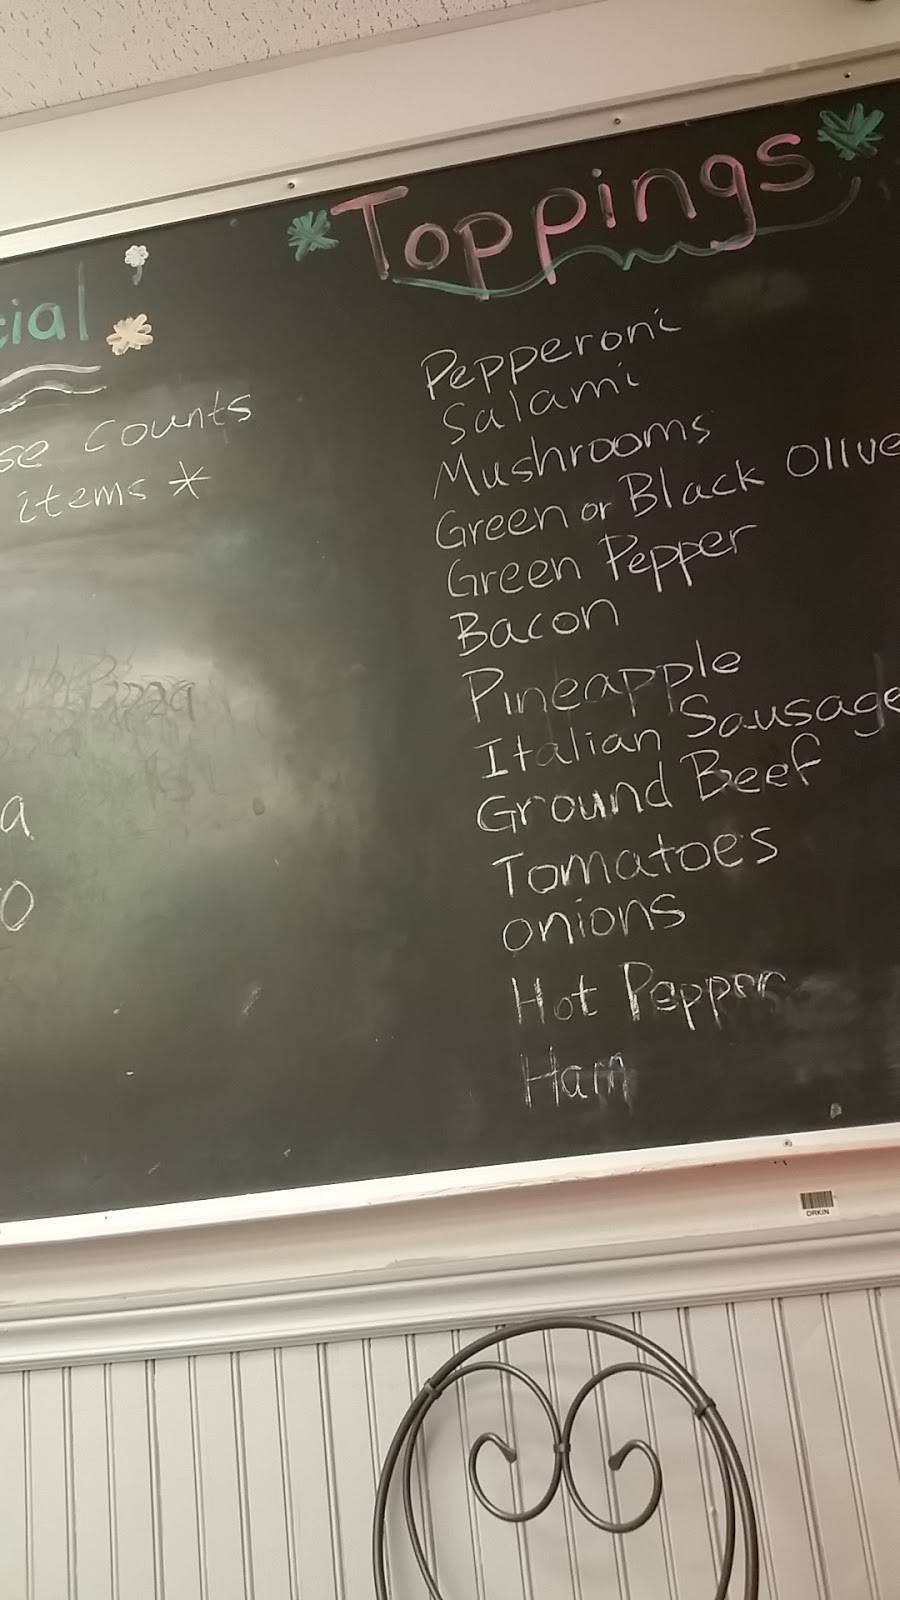 Toppings
cial
se counts
items *
a
o
Pepperoni
Salami
Mushrooms
Green or Black Olive
Green Pepper
Bacon
Pineapple
Italian Sausage
Ground Beef
Tomatoes
onions
Hot Pepper
Ham
ORKIN